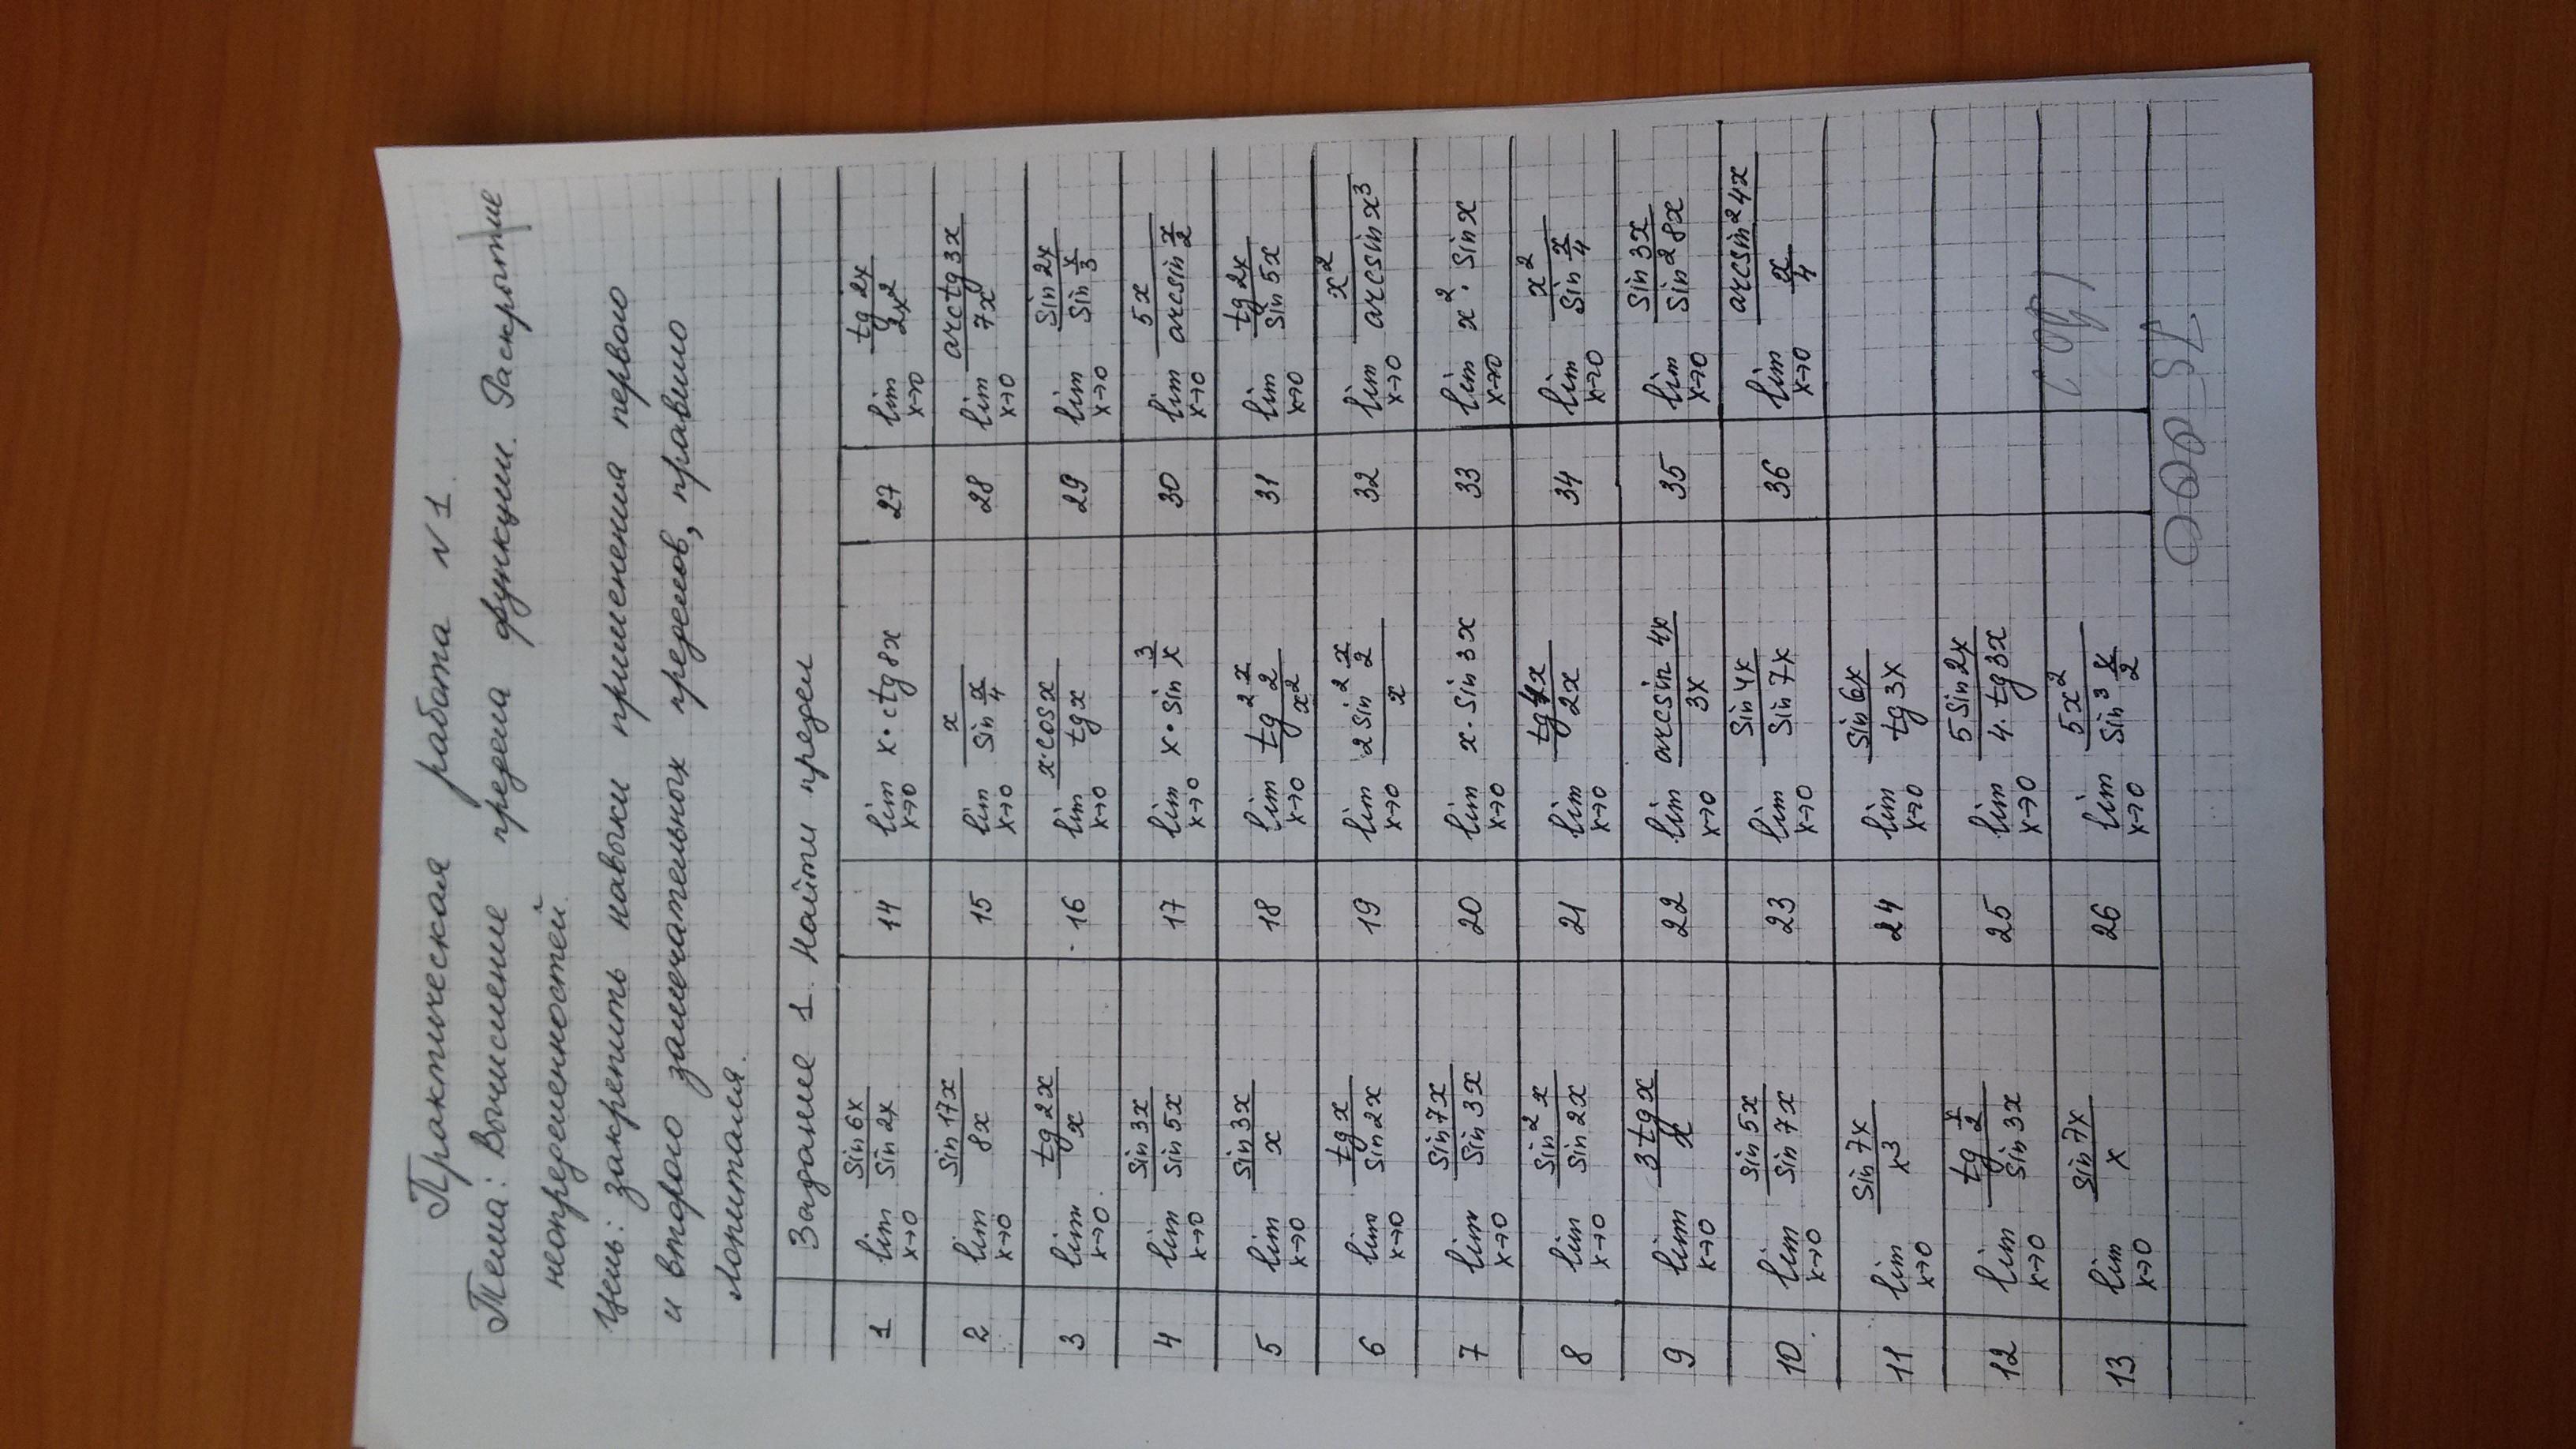 Практическая работа N 1.
Тема: Вычисление предела функции. Раскрытие
неопределенностей.
Цель: закрепить навыки применения первого
и второго замечательных пределов, правило
Лопиталя.
Задание 1. Найти предел
1 lim x→0 Sin 6x / Sin 2x 14 lim x→0 x·ctg 8x 27 lim x→0 tg 2x / 2x²
2 lim x→0 Sin 17x / 8x 15 lim x→0 x / Sin x/4 28 lim x→0 arctg 3x / 7x
3 lim x→0 tg 2x / x 16 lim x→0 x·cos x / tg x 29 lim x→0 Sin 2x / Sin x/3
4 lim x→0 Sin 3x / Sin 5x 17 lim x→0 x·Sin 3/x 30 lim x→0 5x / arcsin x/2
5 lim x→0 Sin 3x / x 18 lim x→0 tg² x/2 / x² 31 lim x→0 tg 2x / Sin 5x
6 lim x→0 tg x / Sin 2x 19 lim x→0 2 Sin² x/2 / x 32 lim x→0 x² / arcsin x³
7 lim x→0 Sin 7x / Sin 3x 20 lim x→0 x·Sin 3x 33 lim x→0 x²·Sin x
8 lim x→0 Sin² x / Sin 2x 21 lim x→0 tg 4x / 2x 34 lim x→0 x² / Sin x/4
9 lim x→0 3 tg x / x 22 lim x→0 arcsin 4x / 3x 35 lim x→0 Sin 3x / Sin² 8x
10. lim x→0 Sin 5x / Sin 7x 23 lim x→0 Sin 4x / Sin 7x 36 lim x→0 arcsin² 4x / x/4
11 lim x→0 Sin 7x / x³ 24 lim x→0 Sin 6x / tg 3x
12 lim x→0 tg x/2 / Sin 3x 25 lim x→0 5 Sin 2x / 4·tg 3x
13 lim x→0 Sin 7x / x 26 lim x→0 5x² / Sin³ x/2